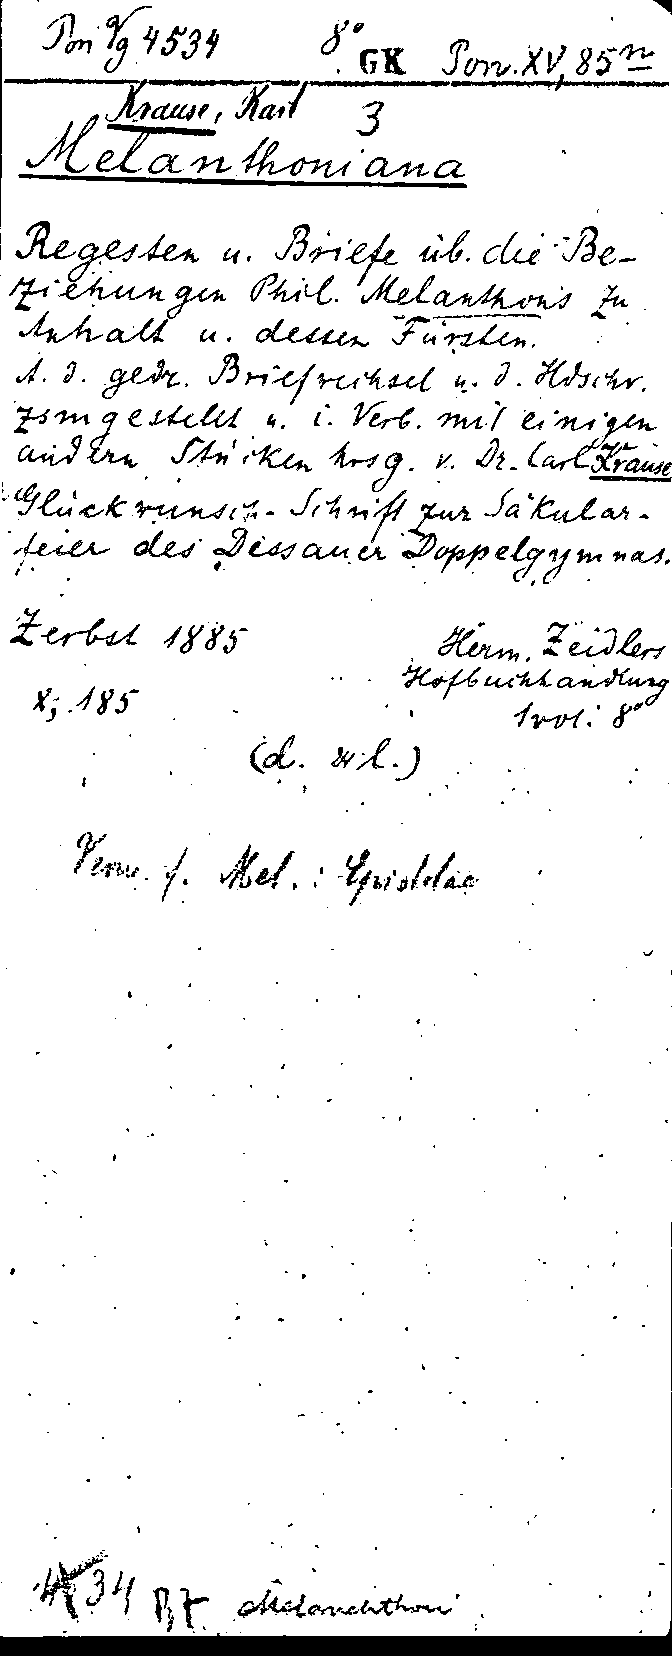 Pon Vg 4534 8° GK Pon. XV, 85 n
Krause, Karl 3
Melanthoniana
Regesten u. Briefe üb. die Be-
ziehungen Phil. Melanthons zu
Anhalt u. dessen Fürsten.
A. d. gedr. Briefwechsel u. d. Hdschr.
zsmgestellt u. i. Verb. mit einigen
andern Stücken hrsg. v. Dr. Carl Krause
Glückwunsch-Schrift zur Säkular-
feier des Dessauer Doppelgymnas.
Zerbst 1885 Herm. Zeidlers
Hofbuchhandlung
X, 185 1 vol. 8°
Verw. f. Mel.: Epistolae
34 Melanchthon